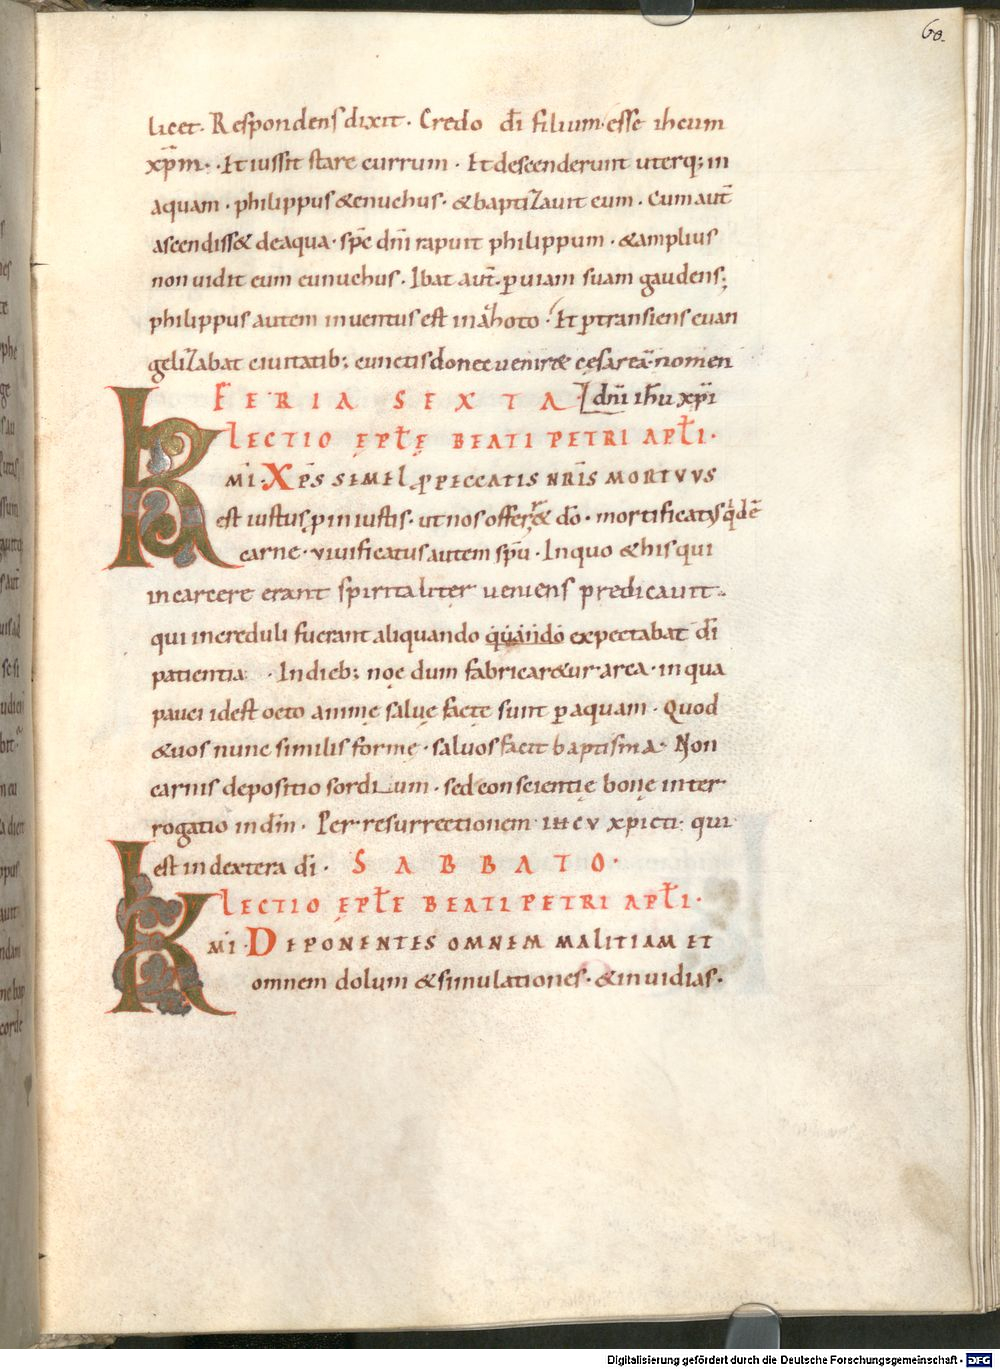 60.
licet. Respondens dixit. Credo dī filium esse ihcum
xp̄m. Et iussit stare currum. Et descenderunt uterq; in
aquam. philippus & enuchus. & baptizauit eum. Cum aut̄
ascendiss& de aqua. sp̄c dn̄i rapuit philippum. & amplius
non uidit eum eunuchus. Ibat aut̄. ꝑ uiam suam gaudens;
philippus autem inuentus est in azoto. Et ꝑtransiens euan
gelizabat ciuitatib; cunctis donec uenir& cęsareā. nomen
FERIA SEXTA. dn̄i ihu xp̄i
LECTIO ĘPŁĘ BEATI PETRI APŁI.
KMI. XP̄S SEMEL ꝓ PECCATIS NRĪS MORTVVS
est iustus ꝑ iniustis. ut nos offerr& dō. mortificatus quidē
carne. viuificatus autem spū. In quo & his qui
in carcere erant spiritaliter ueniens predicauit.
qui increduli fuerant aliquando quando expectabat dī
patientia. In dieb; noe dum fabricar&ur arca. in qua
pauci id est octo animę saluę factę sunt ꝑ aquam. Quod
& uos nunc similis formę. saluos facit baptisma. Non
carnis depositio sordium. sed conscientię bonę inter
rogatio in dm̄. Per resurrectionem ihcv xpicti. qui
est in dextera dī. SABBATO.
LECTIO ĘPŁE BEATI PETRI APŁI.
KMI. DEPONENTES OMNEM MALITIAM ET
omnem dolum & simulationes. & inuidias.
Digitalisierung gefördert durch die Deutsche Forschungsgemeinschaft - DFG